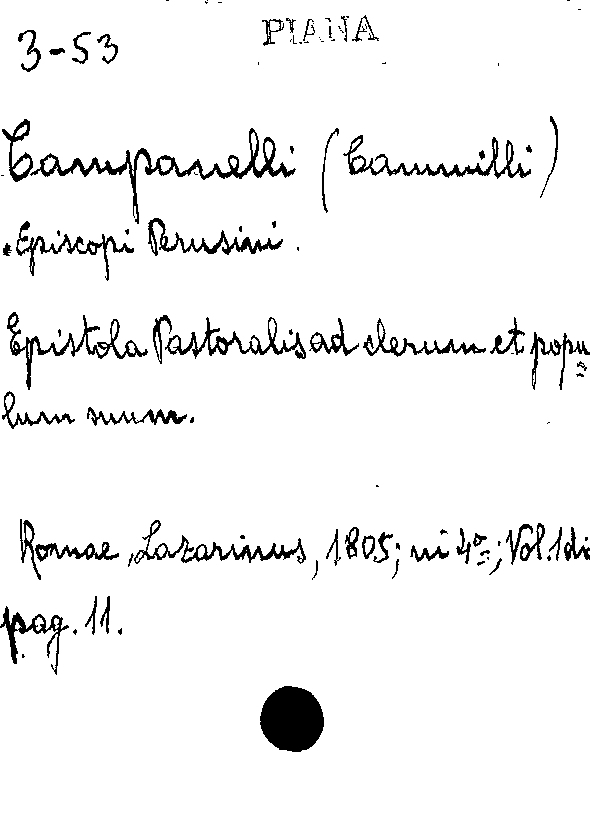 3-53 PIANA
Campanelli (Cammilli)
Episcopi Perusini.
Epistola Pastoralis ad clerum et popu=
lum suum.
Romae, Lazarinus, 1805; in 4º; Vol. 1 di
pag. 11.